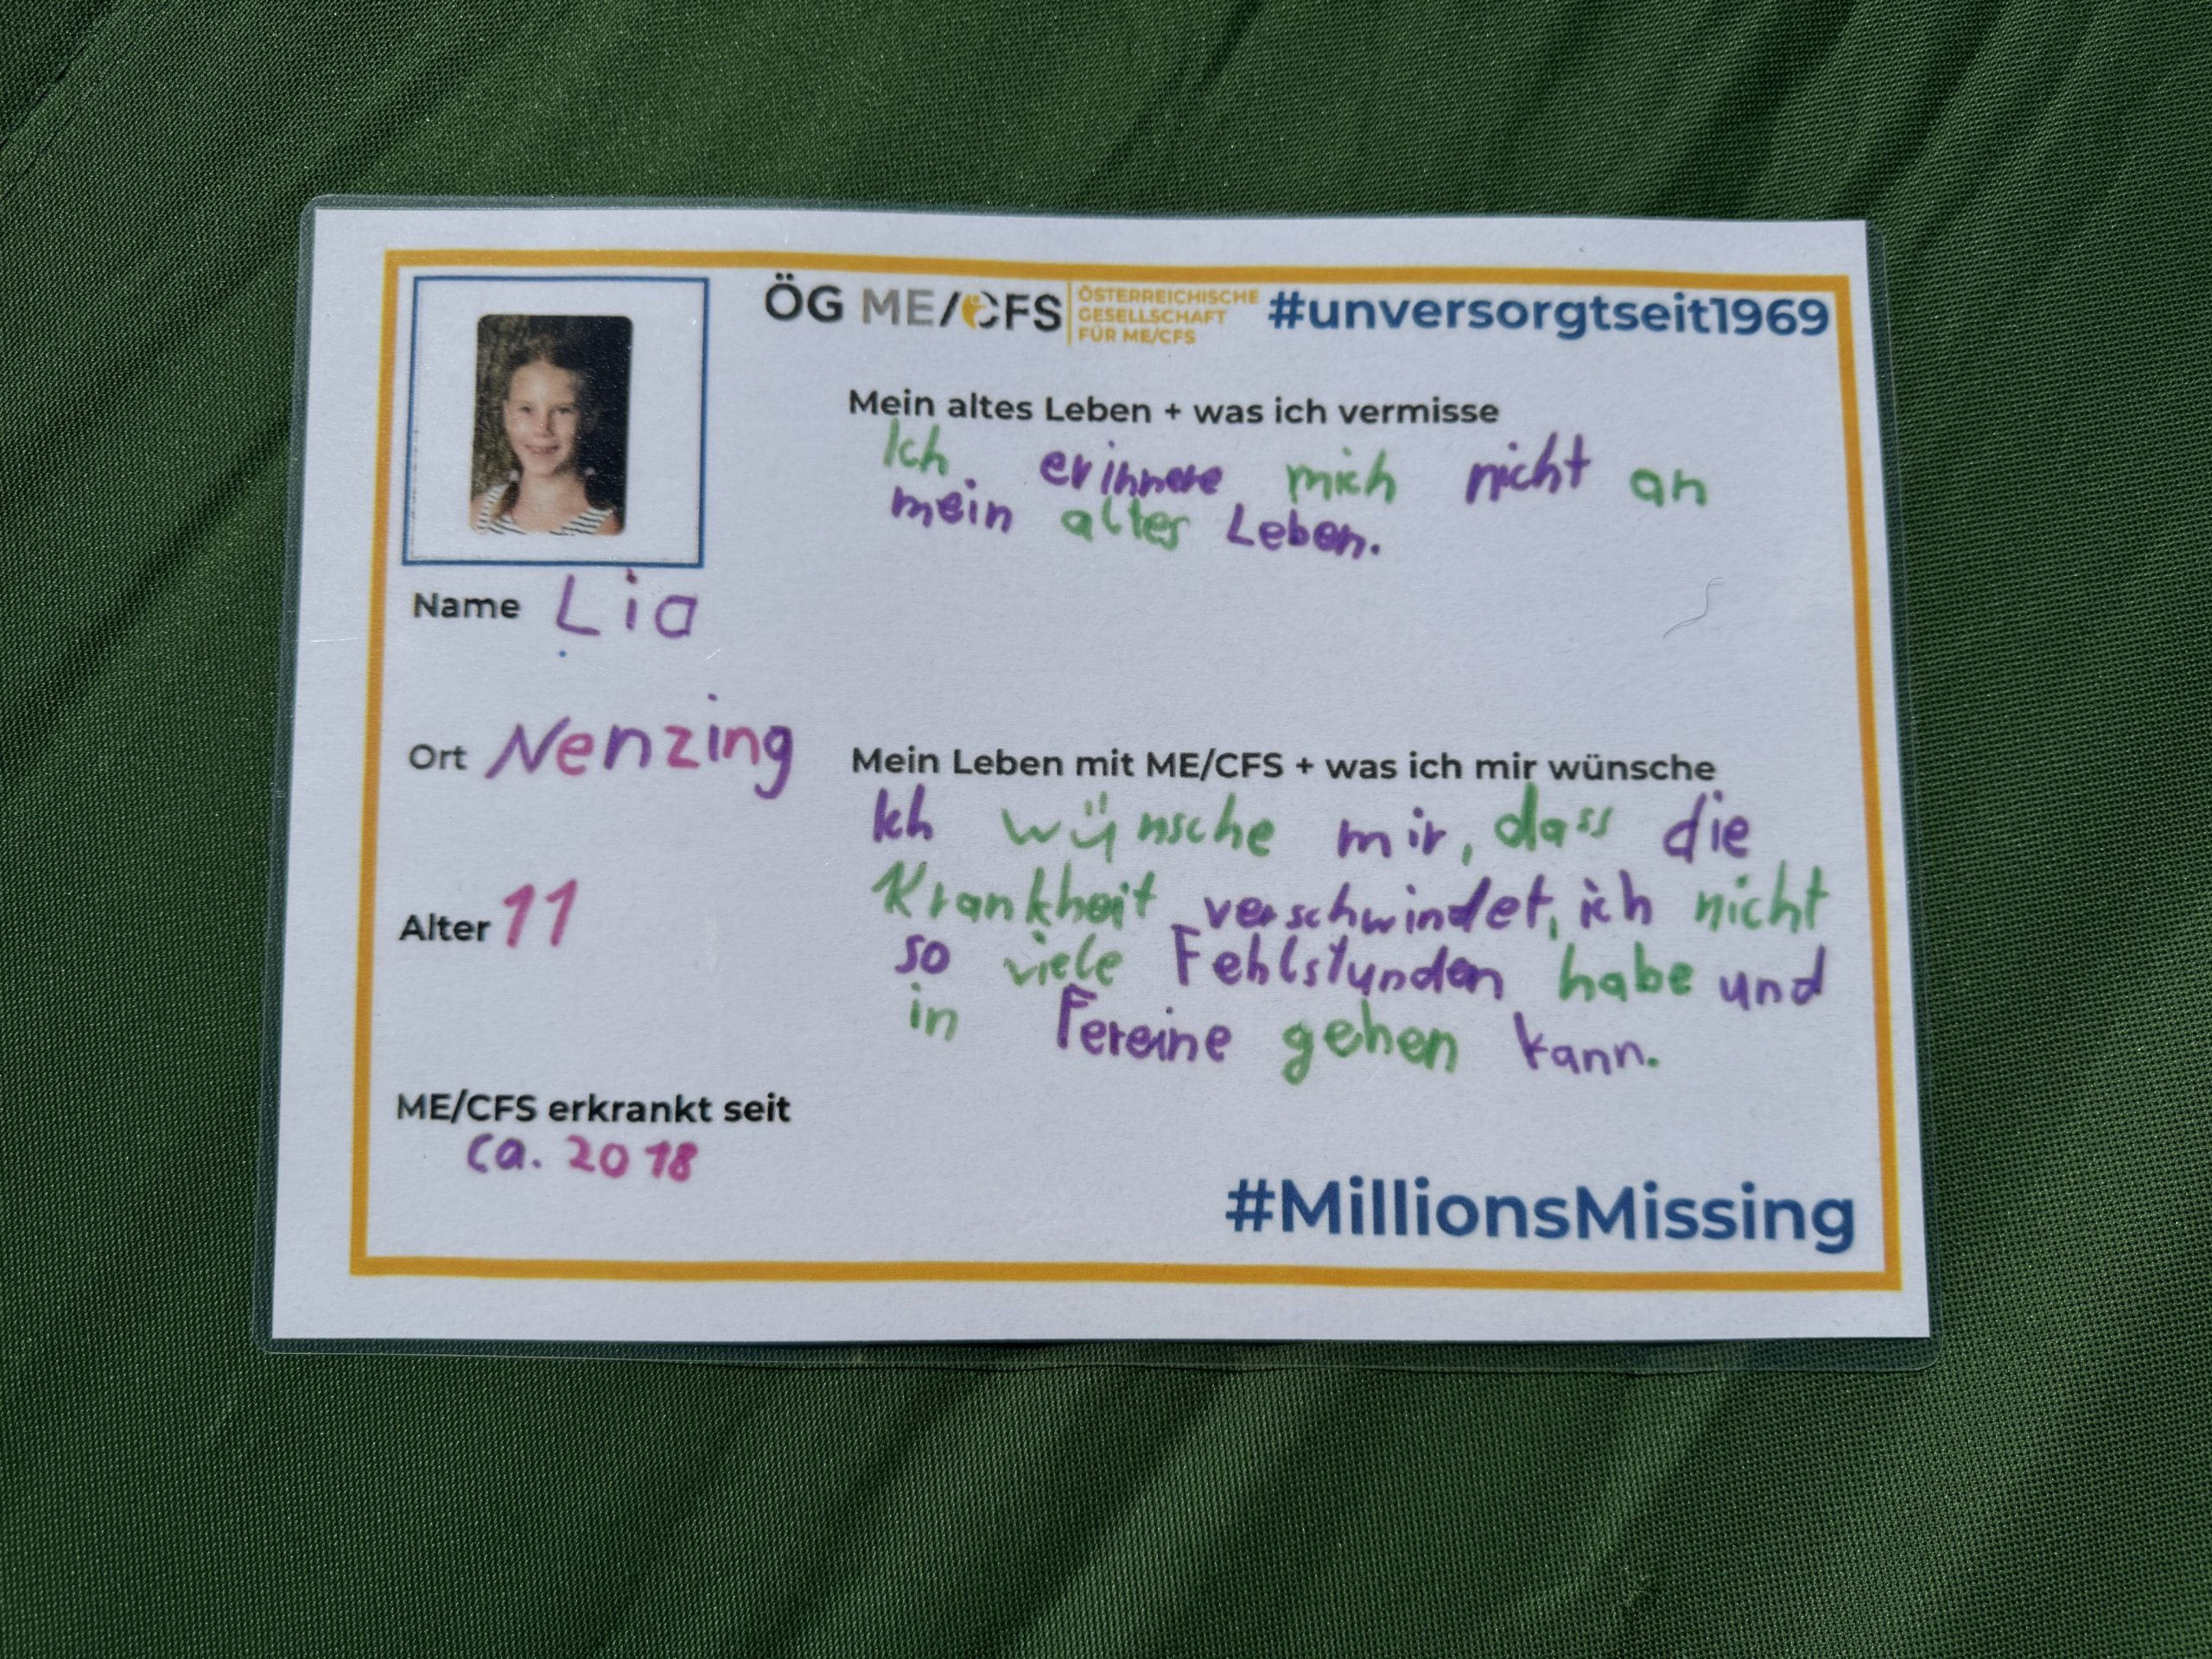 ÖG ME/CFS
ÖSTERREICHISCHE
GESELLSCHAFT
FÜR ME/CFS
#unversorgtseit1969
Mein altes Leben + was ich vermisse
Ich erinnere mich nicht an
mein altes Leben.
Name Lia
Ort Nenzing
Alter 11
ME/CFS erkrankt seit
ca. 2018
Mein Leben mit ME/CFS + was ich mir wünsche
Ich wünsche mir, dass die
Krankheit verschwindet, ich nicht
so viele Fehlstunden habe und
in Fereine gehen kann.
#MillionsMissing